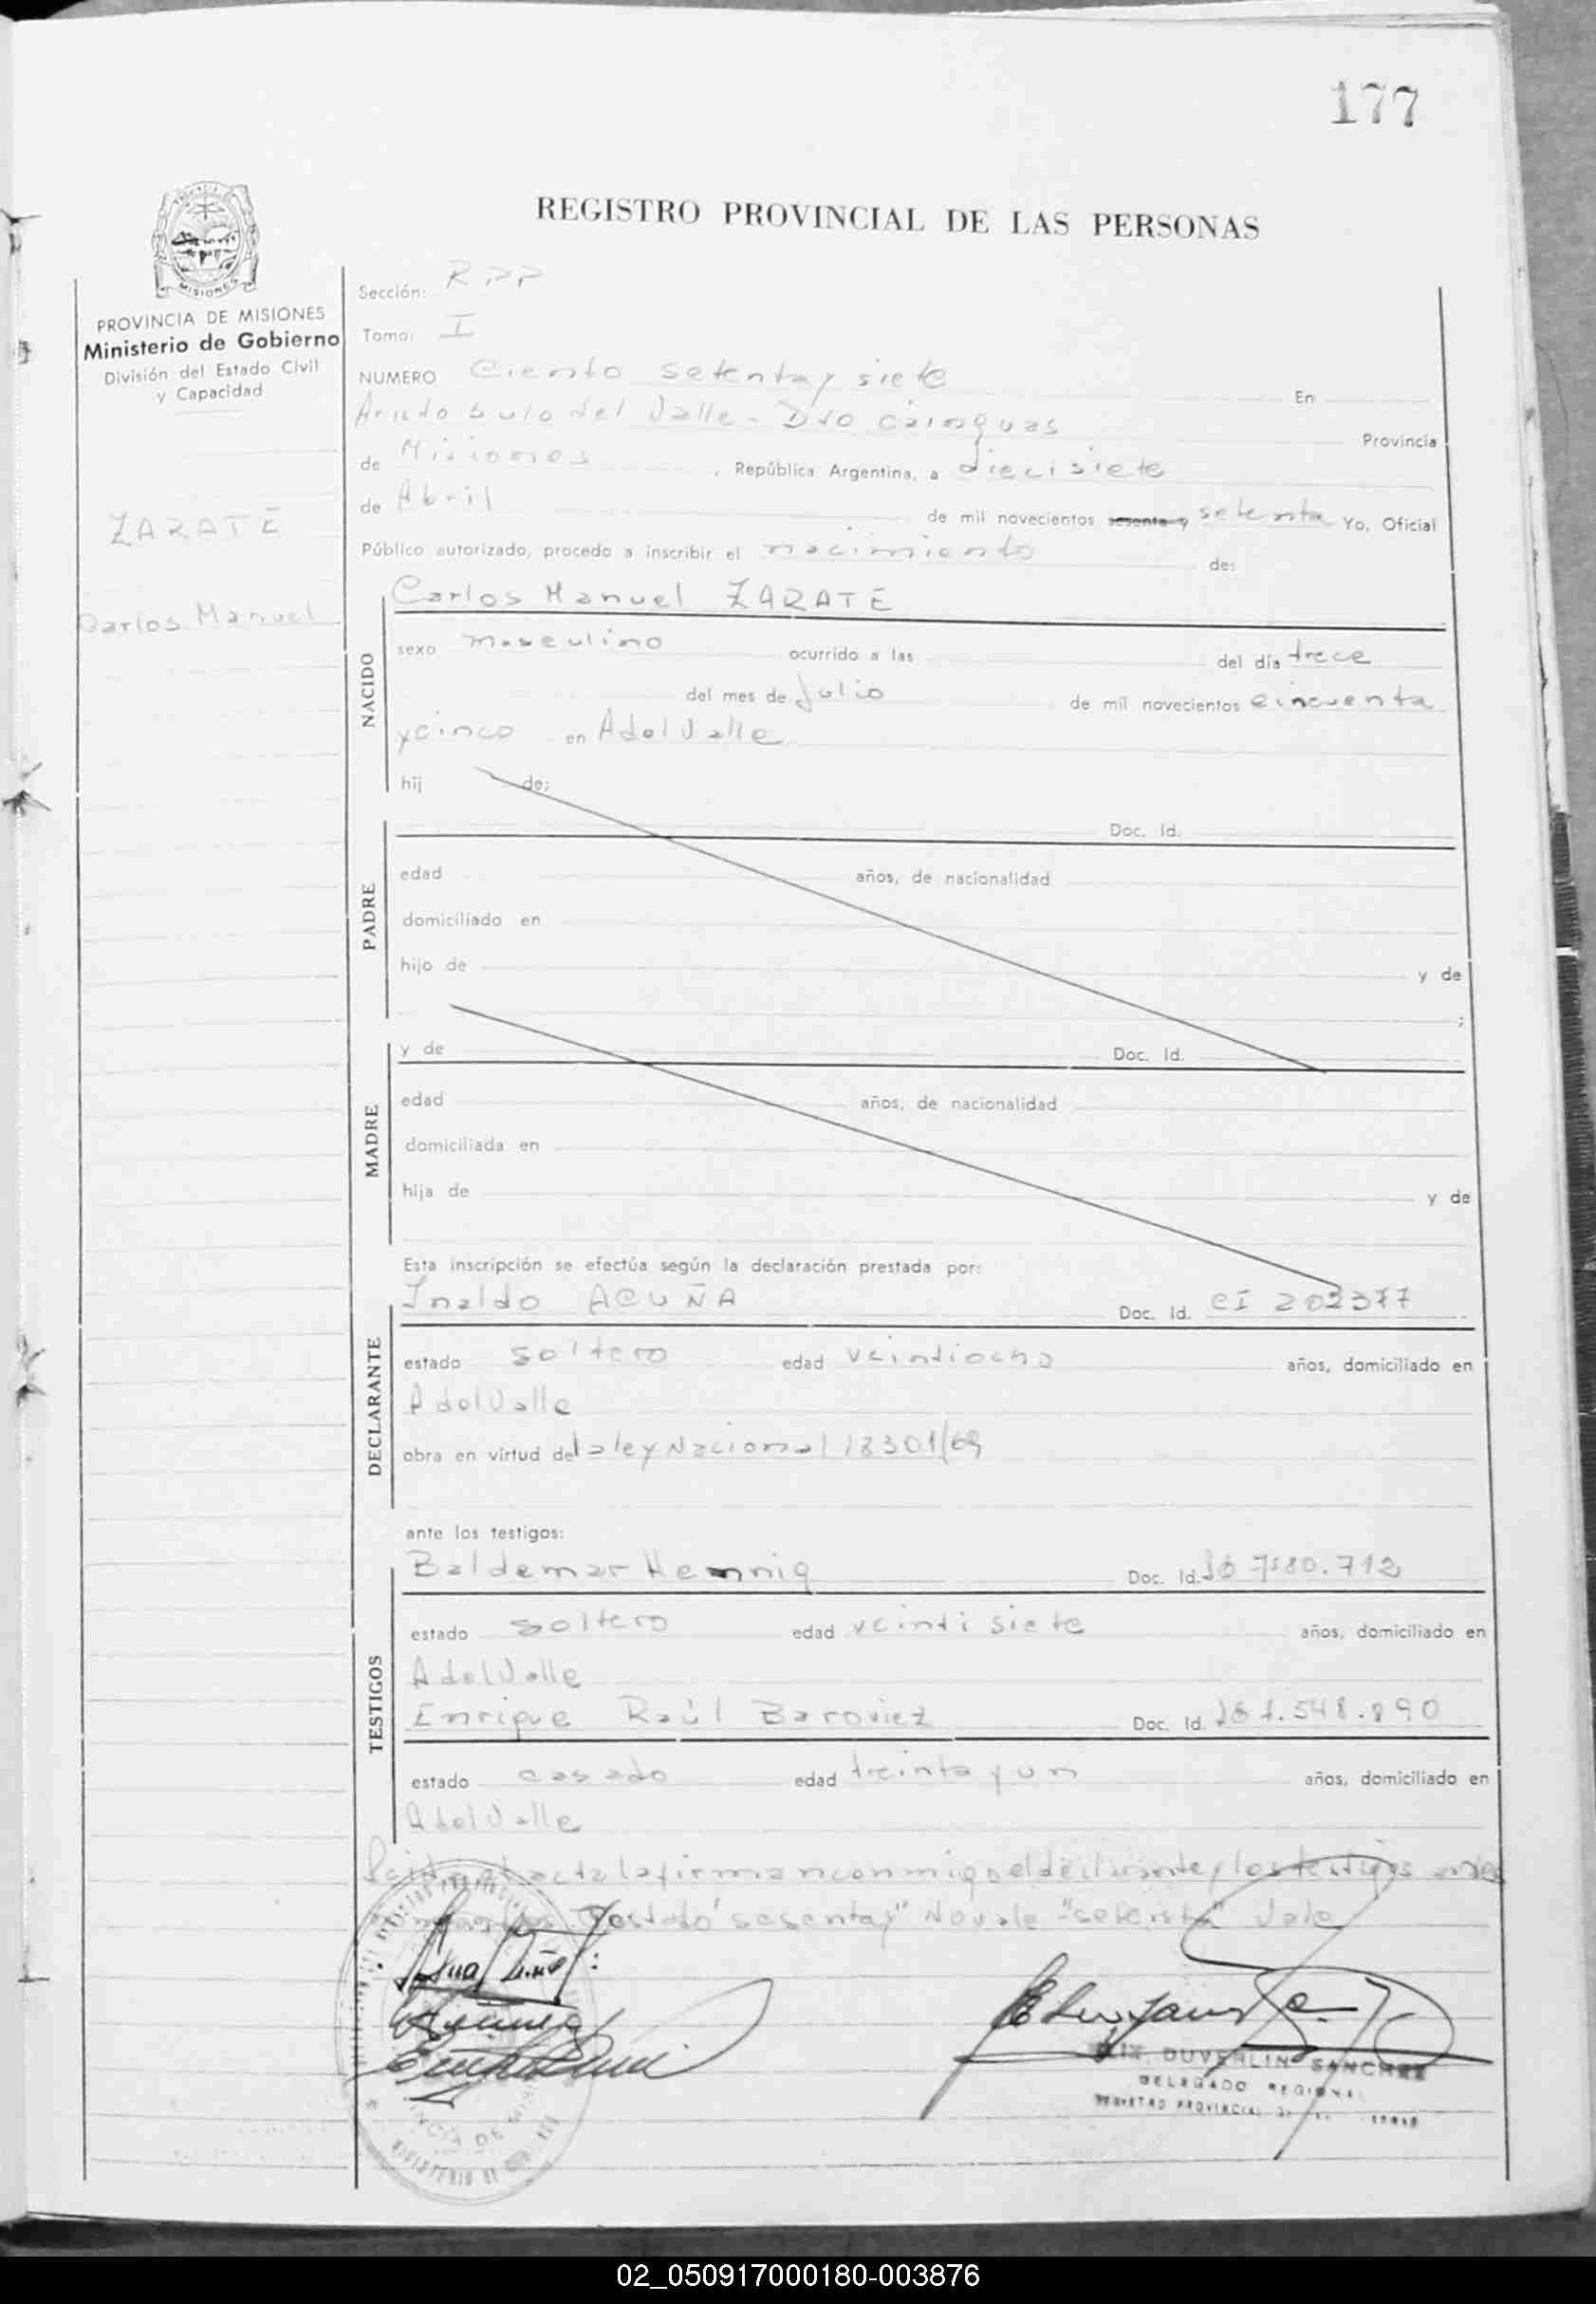 177
REGISTRO PROVINCIAL DE LAS PERSONAS
MISIONES
PROVINCIA DE MISIONES
Ministerio de Gobierno
División del Estado Civil
y Capacidad
ZARATE
Carlos Manuel
Sección: RPP
Tomo: I
NUMERO Ciento setenta y siete En
Aristobulo del Valle - Dto Cainguas Provincia
de Misiones, República Argentina, a diecisiete
de Abril de mil novecientos sesenta y setenta Yo, Oficial
Público autorizado, procedo a inscribir el nacimiento de:
NACIDO
Carlos Manuel ZARATE
sexo masculino ocurrido a las del día trece
del mes de Julio de mil novecientos cincuenta
y cinco en A del Valle
hij de:
PADRE
Doc. Id.
edad años, de nacionalidad
domiciliado en
hijo de y de
;
MADRE
y de Doc. Id.
edad años, de nacionalidad
domiciliada en
hija de y de
Esta inscripción se efectúa según la declaración prestada por:
DECLARANTE
Inaldo ACUÑA Doc. Id. CI 202377
estado soltero edad veintiocho años, domiciliado en
A del Valle
obra en virtud de la ley Nacional 18301/69
ante los testigos:
TESTIGOS
Baldemar Hennig Doc. Id. 7580.712
estado soltero edad veintisiete años, domiciliado en
A del Valle
Enrique Raúl Baroviez Doc. Id.
estado casado edad treinta y un años, domiciliado en
A del Valle
acta la firman conmigo el declarante y los testigos
Testado "sesenta y" No vale "setenta" Vale
DUVERLIN SANCHEZ
DELEGADO REGIONAL
REGISTRO PROVINCIAL
02_050917000180-003876